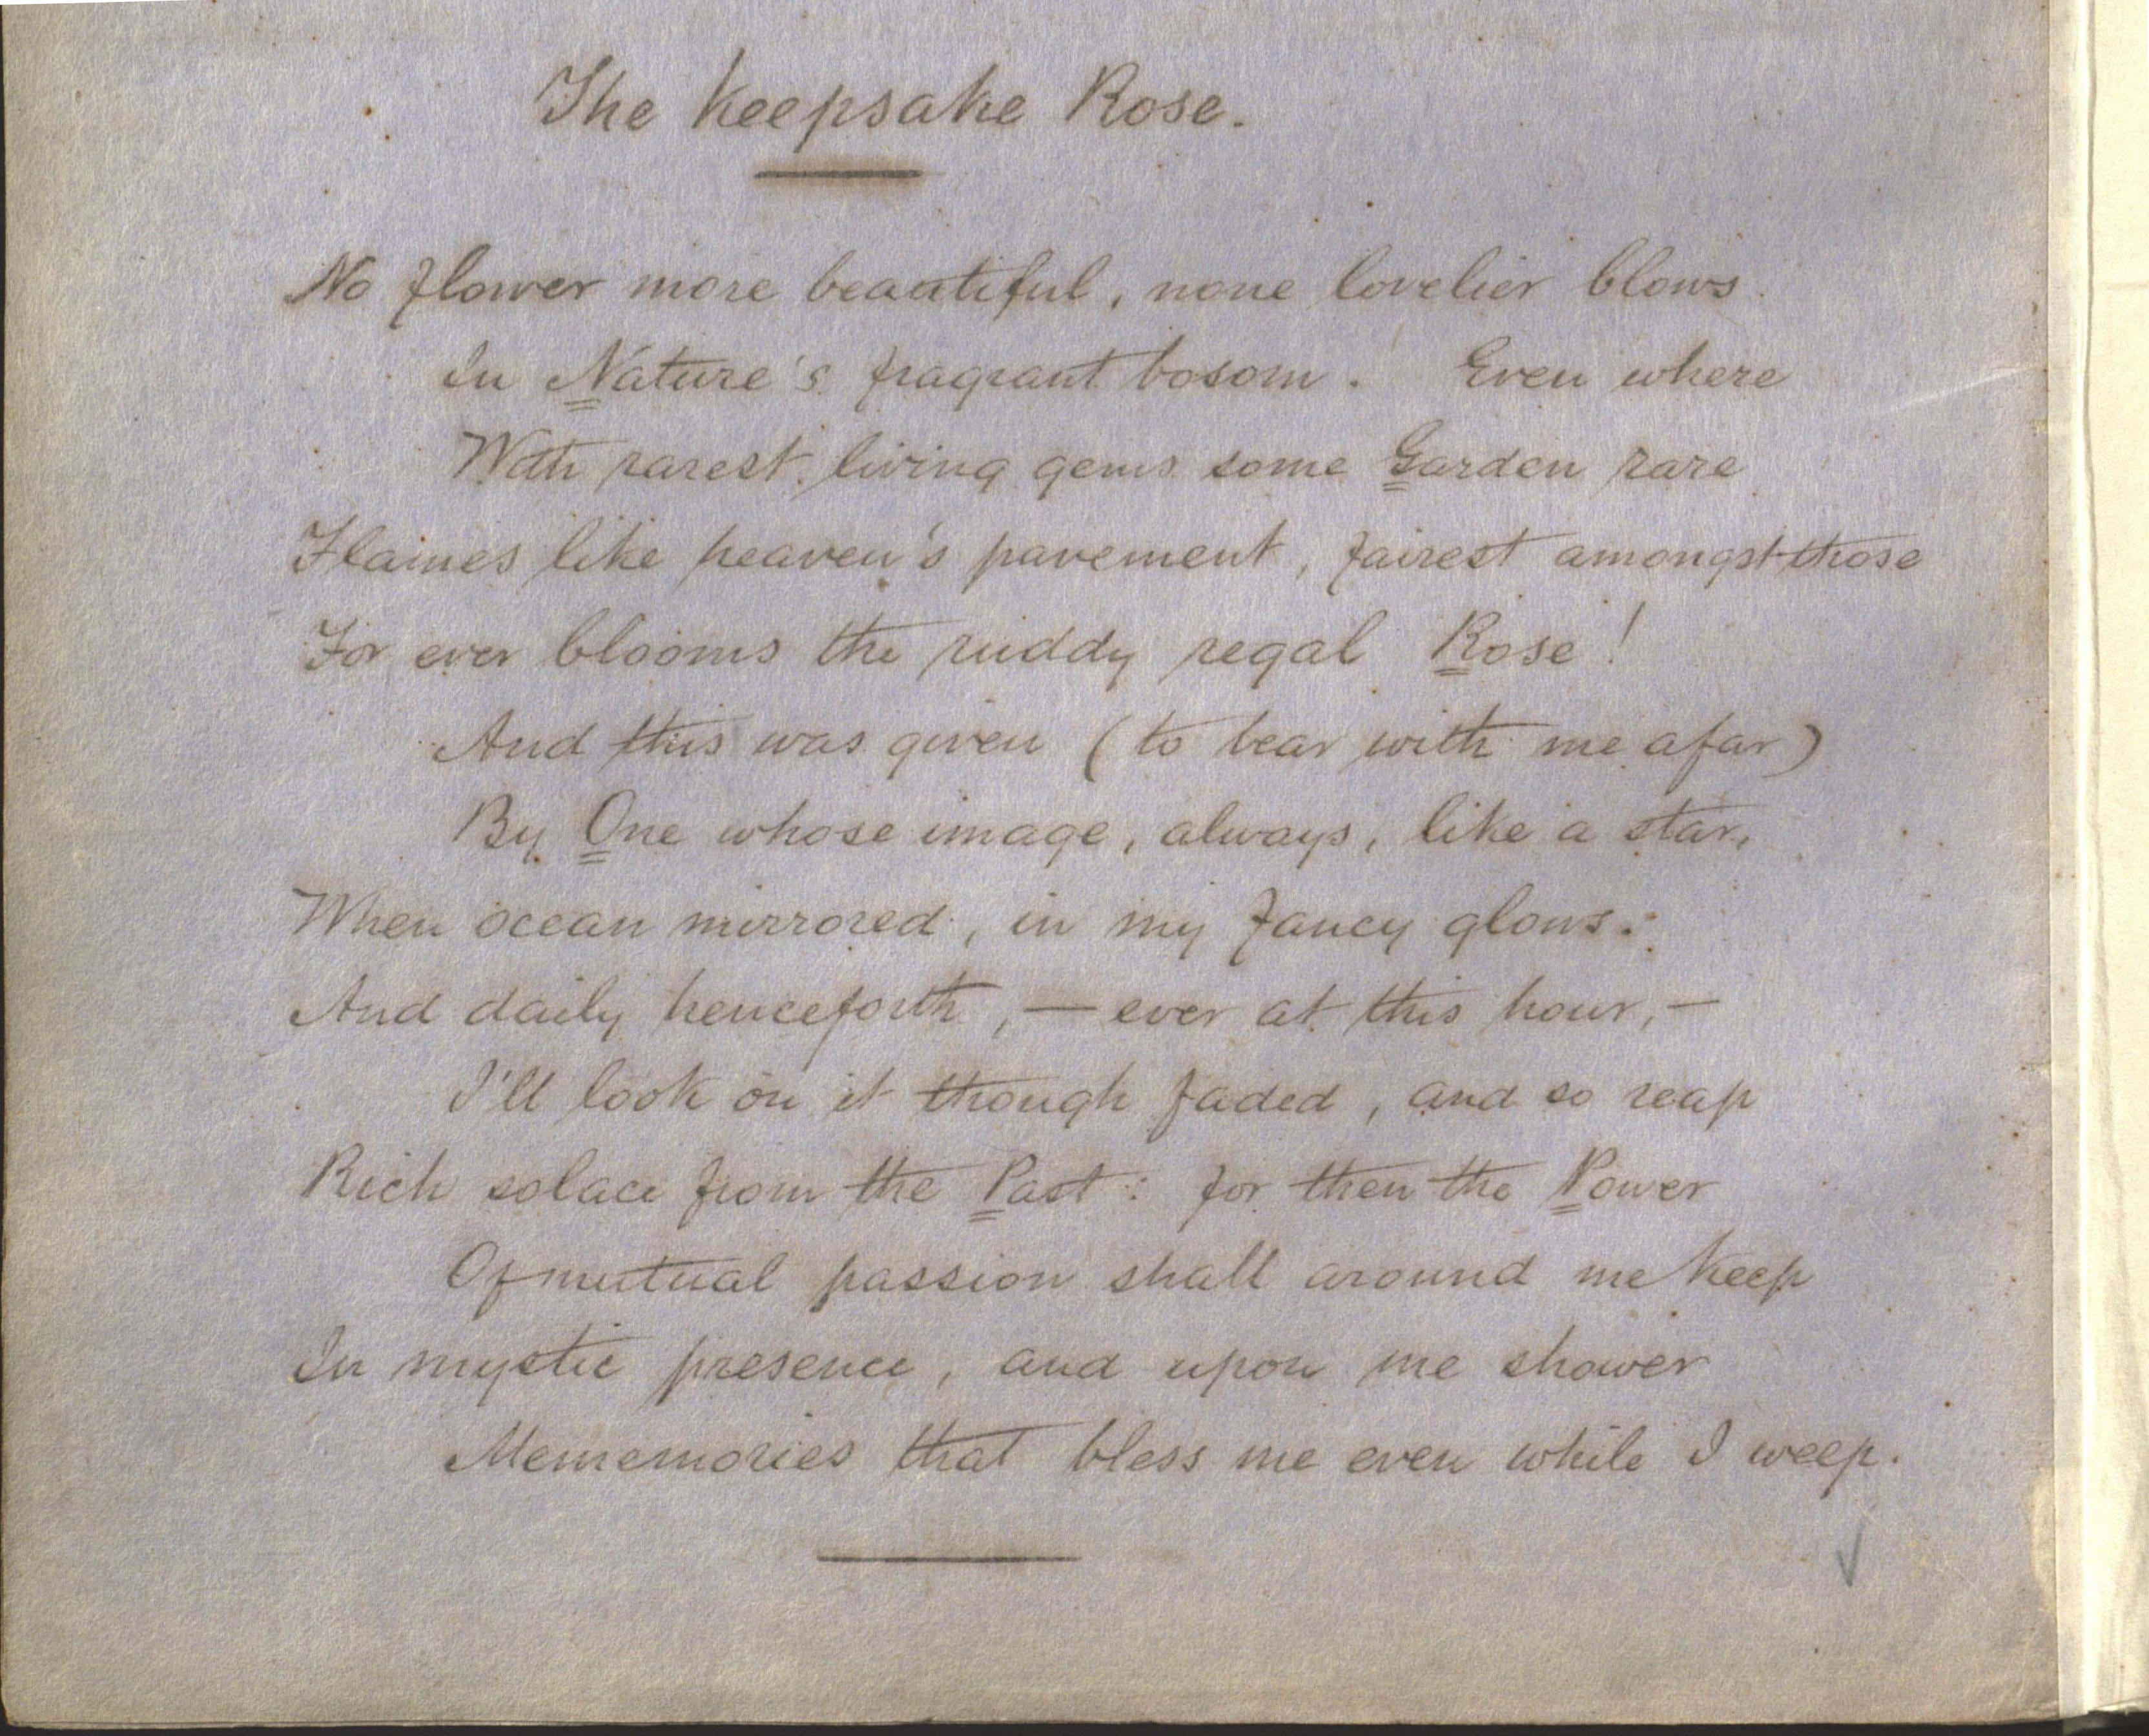 The Keepsake Rose.
No flower more beautiful, none lovelier blows
In Nature's fragrant bosom. Even where
With rarest living gems some Garden rare
Flames like heaven's pavement, fairest amongst those
For ever blooms the ruddy regal Rose!
And this was given (to bear with me afar)
By One whose image, always, like a star,
When ocean mirrored, in my fancy glows:
And daily henceforth, — ever at this hour, —
I'll look on it though faded, and so reap
Rich solace from the Past: for then the Power
Of mutual passion shall around me keep
In mystic presence, and upon me shower
Mememories that bless me even while I weep.